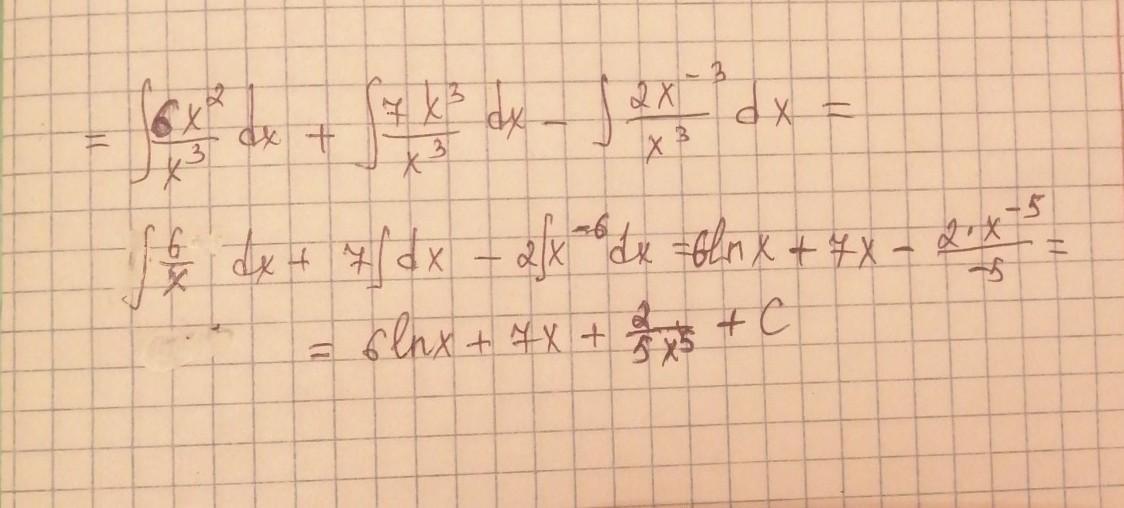 = ∫ 6x²/x³ dx + ∫ 7x³/x³ dx - ∫ 2x⁻³/x³ dx =
∫ 6/x dx + 7∫dx - 2∫x⁻⁶dx = 6lnx + 7x - 2·x⁻⁵/-5 =
= 6lnx + 7x + 2/5x⁵ + C